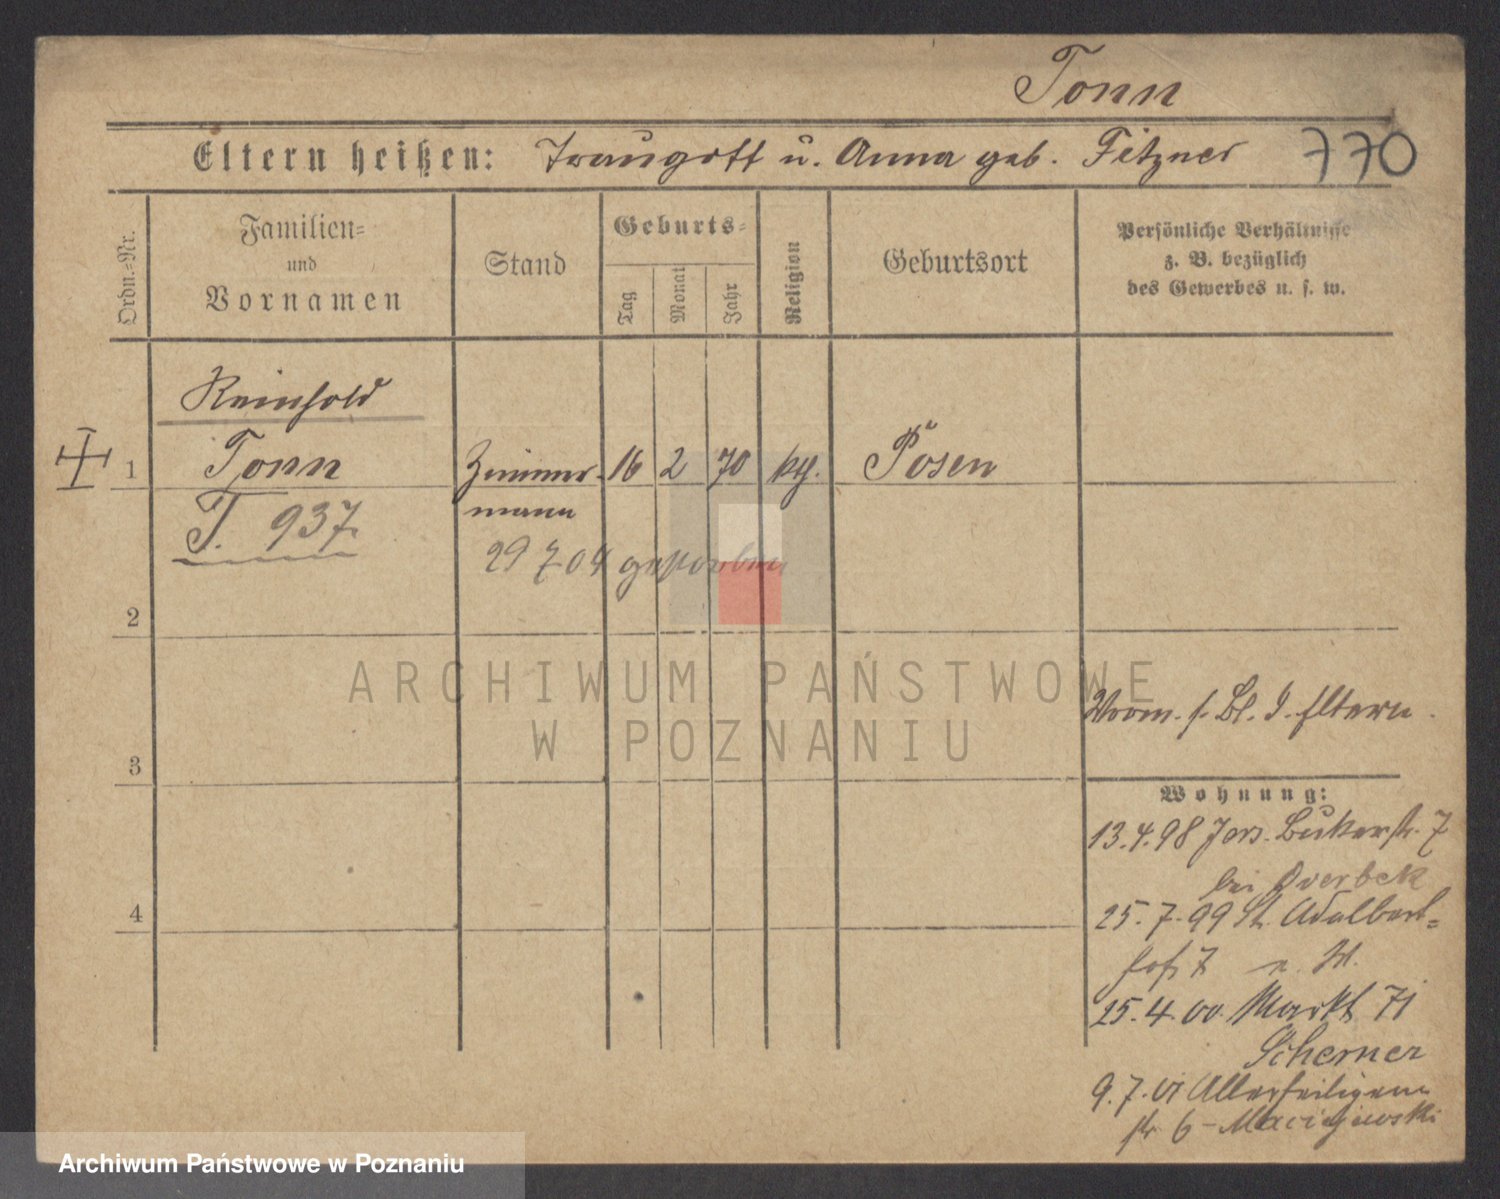 Tonn
Eltern heißen: Traugott u. Anna geb. Fitzner 770
Ordn.-Nr.
Familien-
und
Vornamen
Stand
Geburts-
Tag
Monat
Jahr
Religion
Geburtsort
Persönliche Verhältnisse
z. B. bezüglich
des Gewerbes u. s. w.
Reinhold
1 Tonn Zimmer- 16 2 70 kth. Posen
mann
T. 937.
29 7 04 gestorben
2
ARCHIWUM PAŃSTWOWE
W POZNANIU
s. Bl. d. Eltern.
3
Wohnung:
13.4.98 Jers. Bukerstr. 7
bei Overbeck
4
25.7.99 St. Adalbert-
hof 7
25.4.00. Markt 71
Scherner
9.7.01 Allerheiligen-
str 6 - Maciejewski
Archiwum Państwowe w Poznaniu